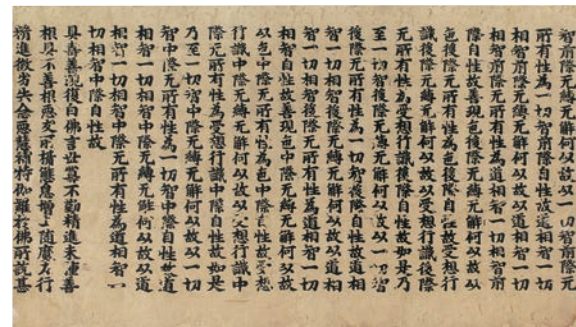 智前際无縛无解何以故以一切智前際无
所有性為一切智前際自性故道相智一切
相智前際无縛无解何以故以道相智一切
相智前際无所有性為道相智一切相智前
際自性故善現色後際无縛无解何以故以
色後際无所有性為色後際自性故受想行
識後際无縛无解何以故以受想行識後際
无所有性為受想行識後際自性故如是乃
至一切智後際无縛无解何以故以一切智
後際无所有性為一切智後際自性故道相
智一切相智後際无縛无解何以故以道相
智一切相智後際无所有性為道相智一切
相智自性故善現色中際无縛无解何以故
以色中際无所有性為色中際自性故受想
行識中際无縛无解何以故以受想行識中
際无所有性為受想行識中際自性故如是
乃至一切智中際无縛无解何以故以一切
智中際无所有性為一切智中際自性故道
相智一切相智中際无縛无解何以故以道
相智一切相智中際无所有性為道相智一
切相智中際自性故
具壽善現復白佛言世尊不勤精進未種善
根具不善根惡友所攝懈怠增上隨魔力行
精進微劣失念惡慧補特伽羅於佛所說甚